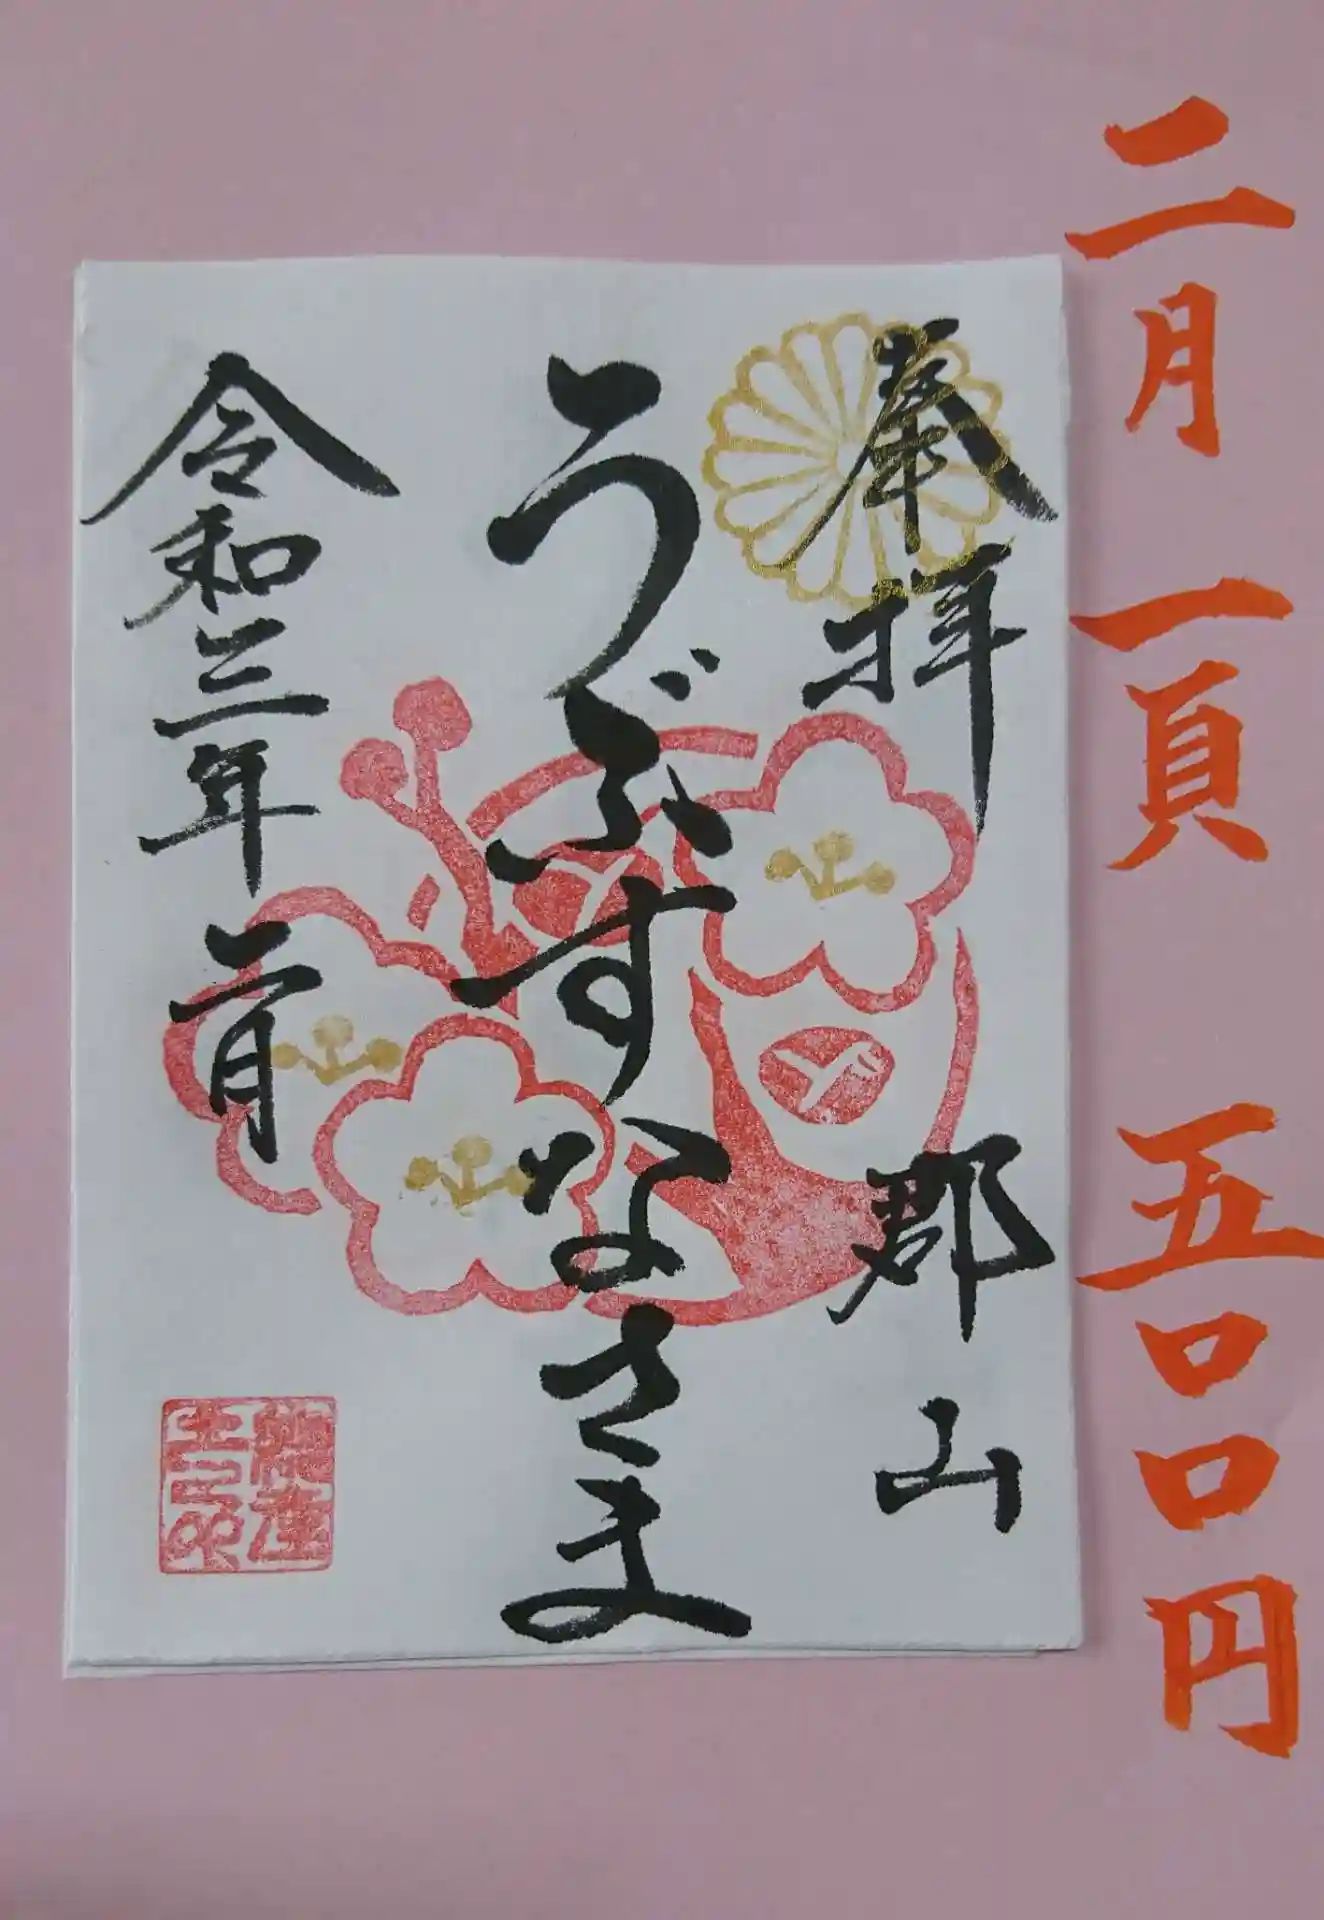 二月 一頁 五〇〇円
奉拝 郡山
うぶすなさま
令和三年二月